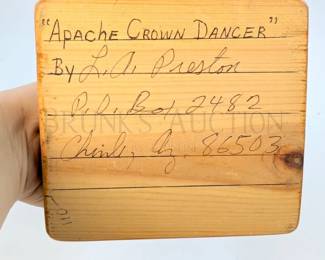 "Apache Crown Dancer"
By L.A. Preston
P.O. Box 2482
BRUNK'S AUCTION
Chinle, Az. 86503